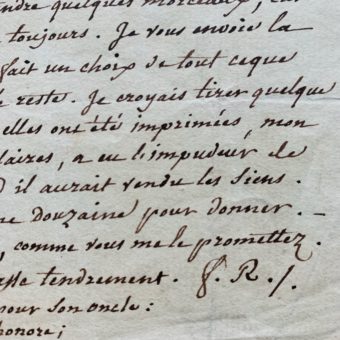 endre quelques morceaux, car
toujours. Je vous envoie la
fait un choix de tout ceque
reste. Je croyais tirer quelque
elles ont été imprimées, mon
laires, a eu l'impudeur de
il aurait vendu les siens.
ne douzaine pour donner. –
, comme vous me le promettez.
asse tendrement. f. R. /.
pour son oncle:
honore;